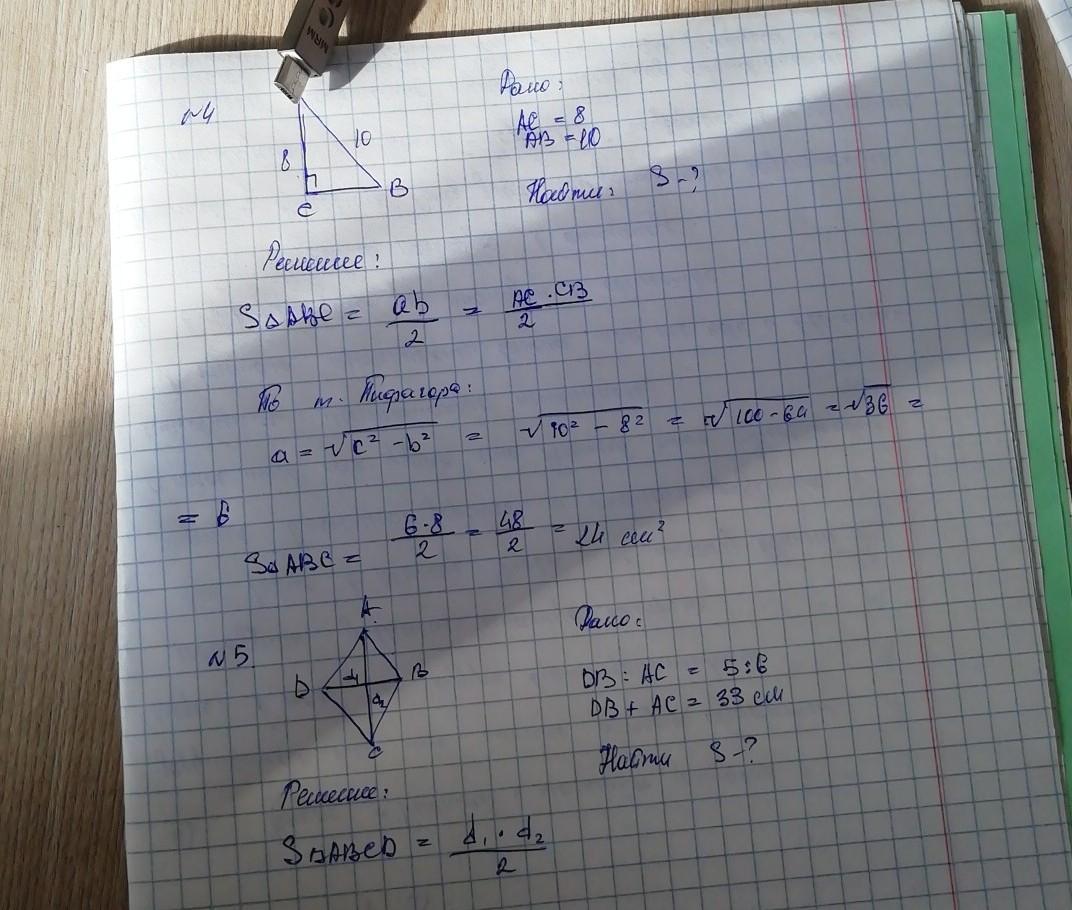 MRM
№4
Дано:
AC = 8
AB = 10
8
10
C
B
Найти: S-?
Решение:
S△ABC = ab/2 = AC·CB/2
По т. Пифагора:
a = √c² - b² = √10² - 8² = √100-64 = √36 =
= 6
S△ABC = 6·8/2 = 48/2 = 24 см²
№5.
A
D
B
d₁
d₂
C
Дано:
DB : AC = 5:6
DB + AC = 33 см
Найти S-?
Решение:
SABCD = d₁·d₂/2